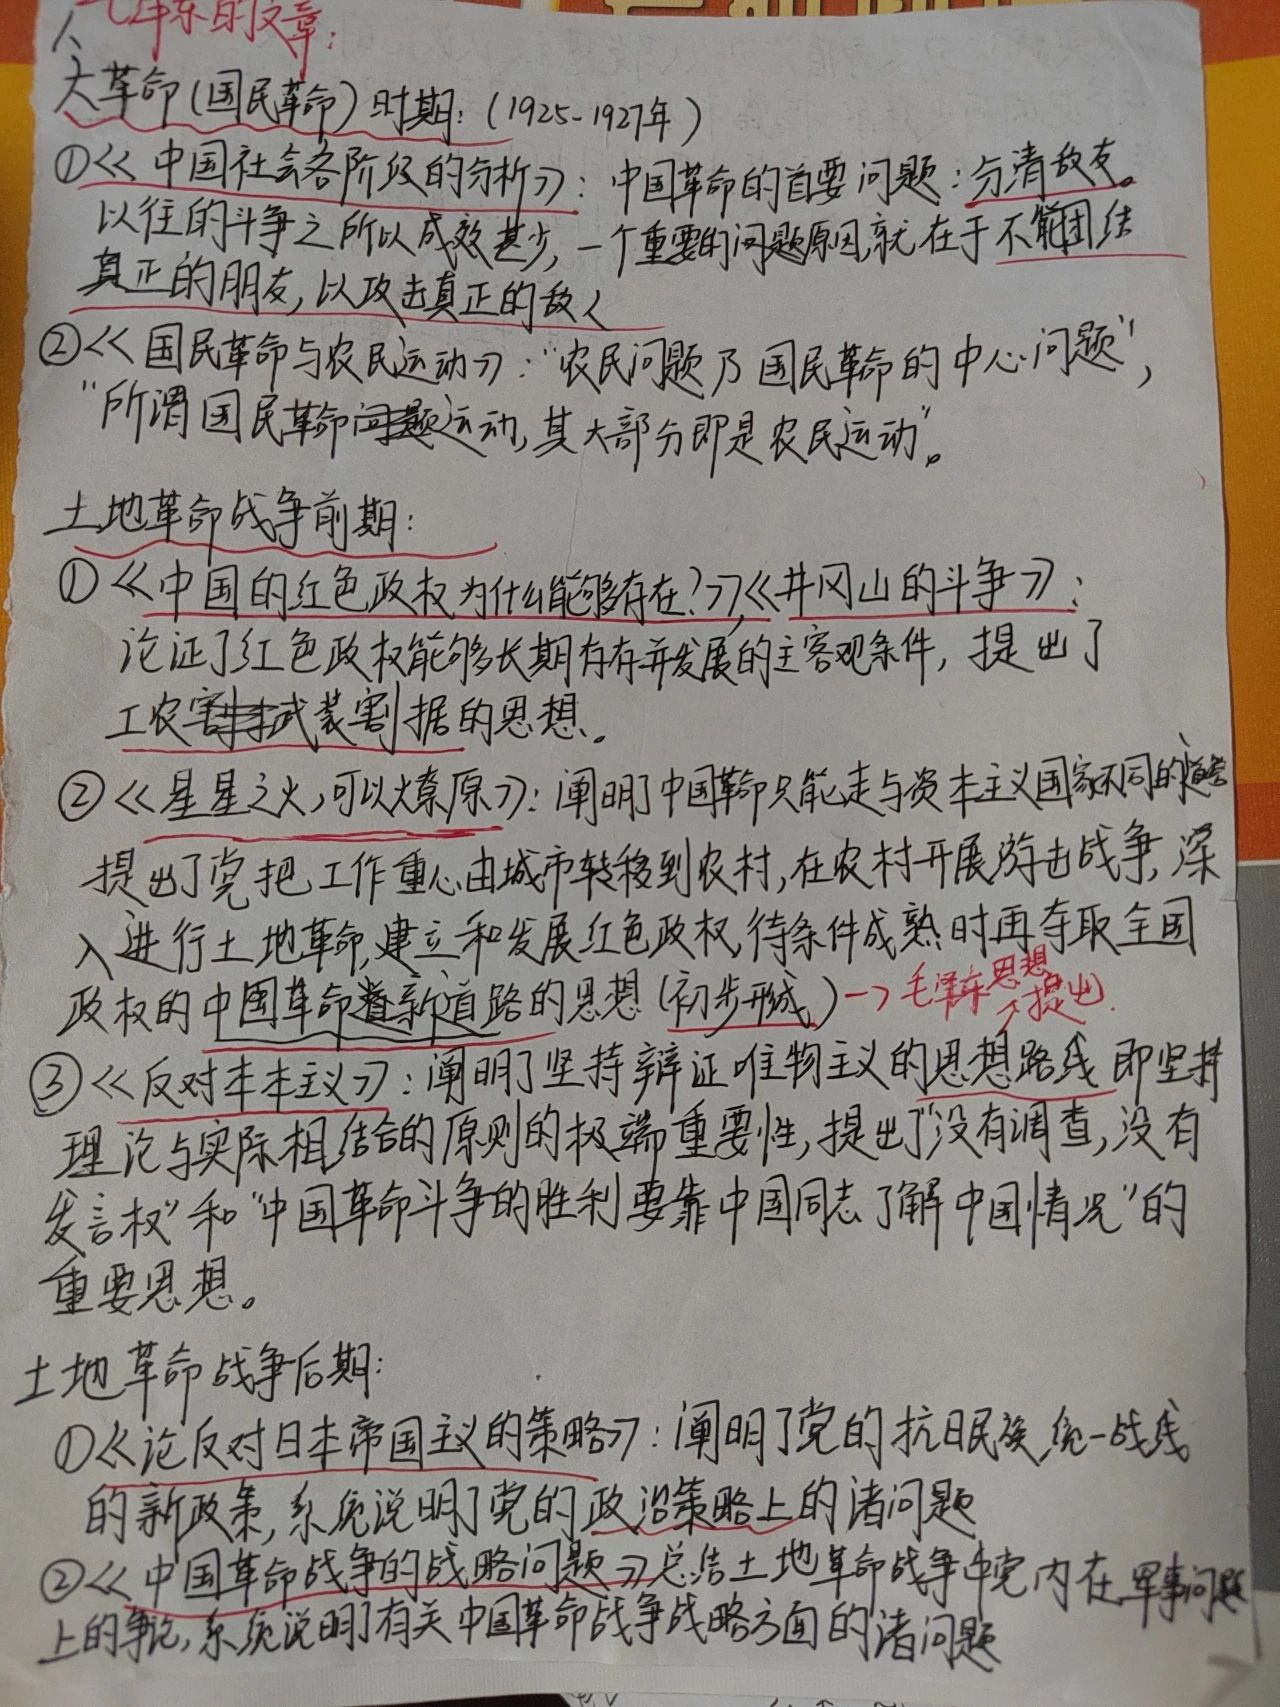 人、毛泽东的文章:
大革命(国民革命)时期:(1925-1927年)
①《中国社会各阶级的分析》:中国革命的首要问题:分清敌友。
以往的斗争之所以成效甚少,一个重要的问题原因,就在于不能团结
真正的朋友,以攻击真正的敌人
②《国民革命与农民运动》:“农民问题乃国民革命的中心问题”,
“所谓国民革命问题运动,其大部分即是农民运动”。
土地革命战争前期:
①《中国的红色政权为什么能够存在?》,《井冈山的斗争》:
论证了红色政权能够长期存在并发展的主客观条件,提出了
工农割据武装割据的思想。
②《星星之火,可以燎原》:阐明了中国革命只能走与资本主义国家不同的道路
提出了党把工作重心由城市转移到农村,在农村开展游击战争,深
入进行土地革命,建立和发展红色政权,待条件成熟时再夺取全国
政权的中国革命新道路的思想(初步形成)→毛泽东思想提出.
③《反对本本主义》:阐明了坚持辩证唯物主义的思想路线即坚持
理论与实际相结合的原则的极端重要性,提出了“没有调查,没有
发言权”和“中国革命斗争的胜利要靠中国同志了解中国情况”的
重要思想。
土地革命战争后期:
①《论反对日本帝国主义的策略》:阐明了党的抗日民族统一战线
的新政策,系统说明了党的政治策略上的诸问题
②《中国革命战争的战略问题》总结土地革命战争中党内在军事问题
上的争论,系统说明了有关中国革命战争战略方面的诸问题